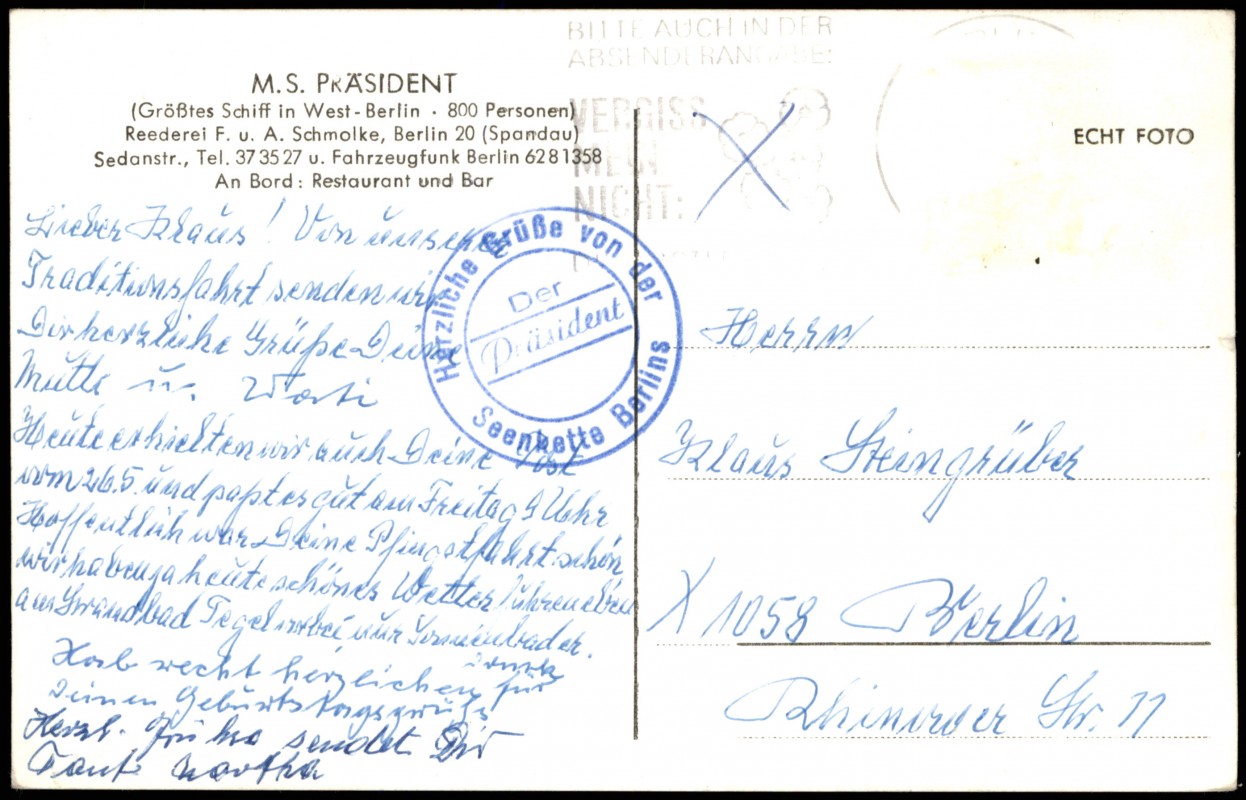 M.S. PRÄSIDENT
(Größtes Schiff in West-Berlin · 800 Personen)
Reederei F. u. A. Schmolke, Berlin 20 (Spandau)
Sedanstr., Tel. 37 35 27 u. Fahrzeugfunk Berlin 6281358
An Bord: Restaurant und Bar
Lieber Klaus! Von unserer
Traditionsfahrt senden wir
Dir herzliche Grüße Deine
Mutti u.
Heute erhielten wir auch Deine Post
vom 26.5. und paßt es gut am Freitag 9 Uhr
Hoffentlich war Deine Pfingstfahrt schön
wir haben ja heute schönes Wetter fuhren eben
am Strandbad Tegel vorbei nur Sonnenbader.
Hab recht herzlichen Dank für
Deinen Geburtstagsgruß
Herzl. Grüße sendet Dir
Tante Martha
Herzliche Grüße von der
Der
Präsident
Seenkette Berlins
BITTE AUCH IN DER
ABSENDERANGABE:
VERGISS
MEIN
NICHT:
ECHT FOTO
Herrn
Klaus Steingrüber
X 1058 Berlin
Str. 11